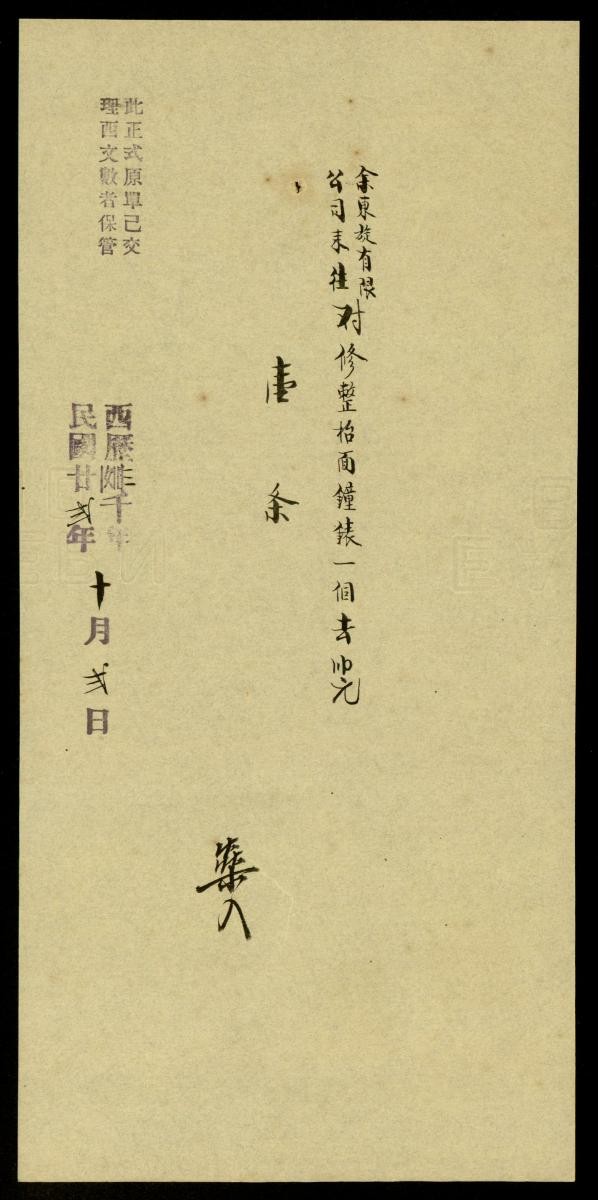 余東旋有限
公司來往対修整枱面鐘錶一個去
壹条
此正式原單已交
理西文數者保管
西曆 千年
民國廿弍年十月弍日